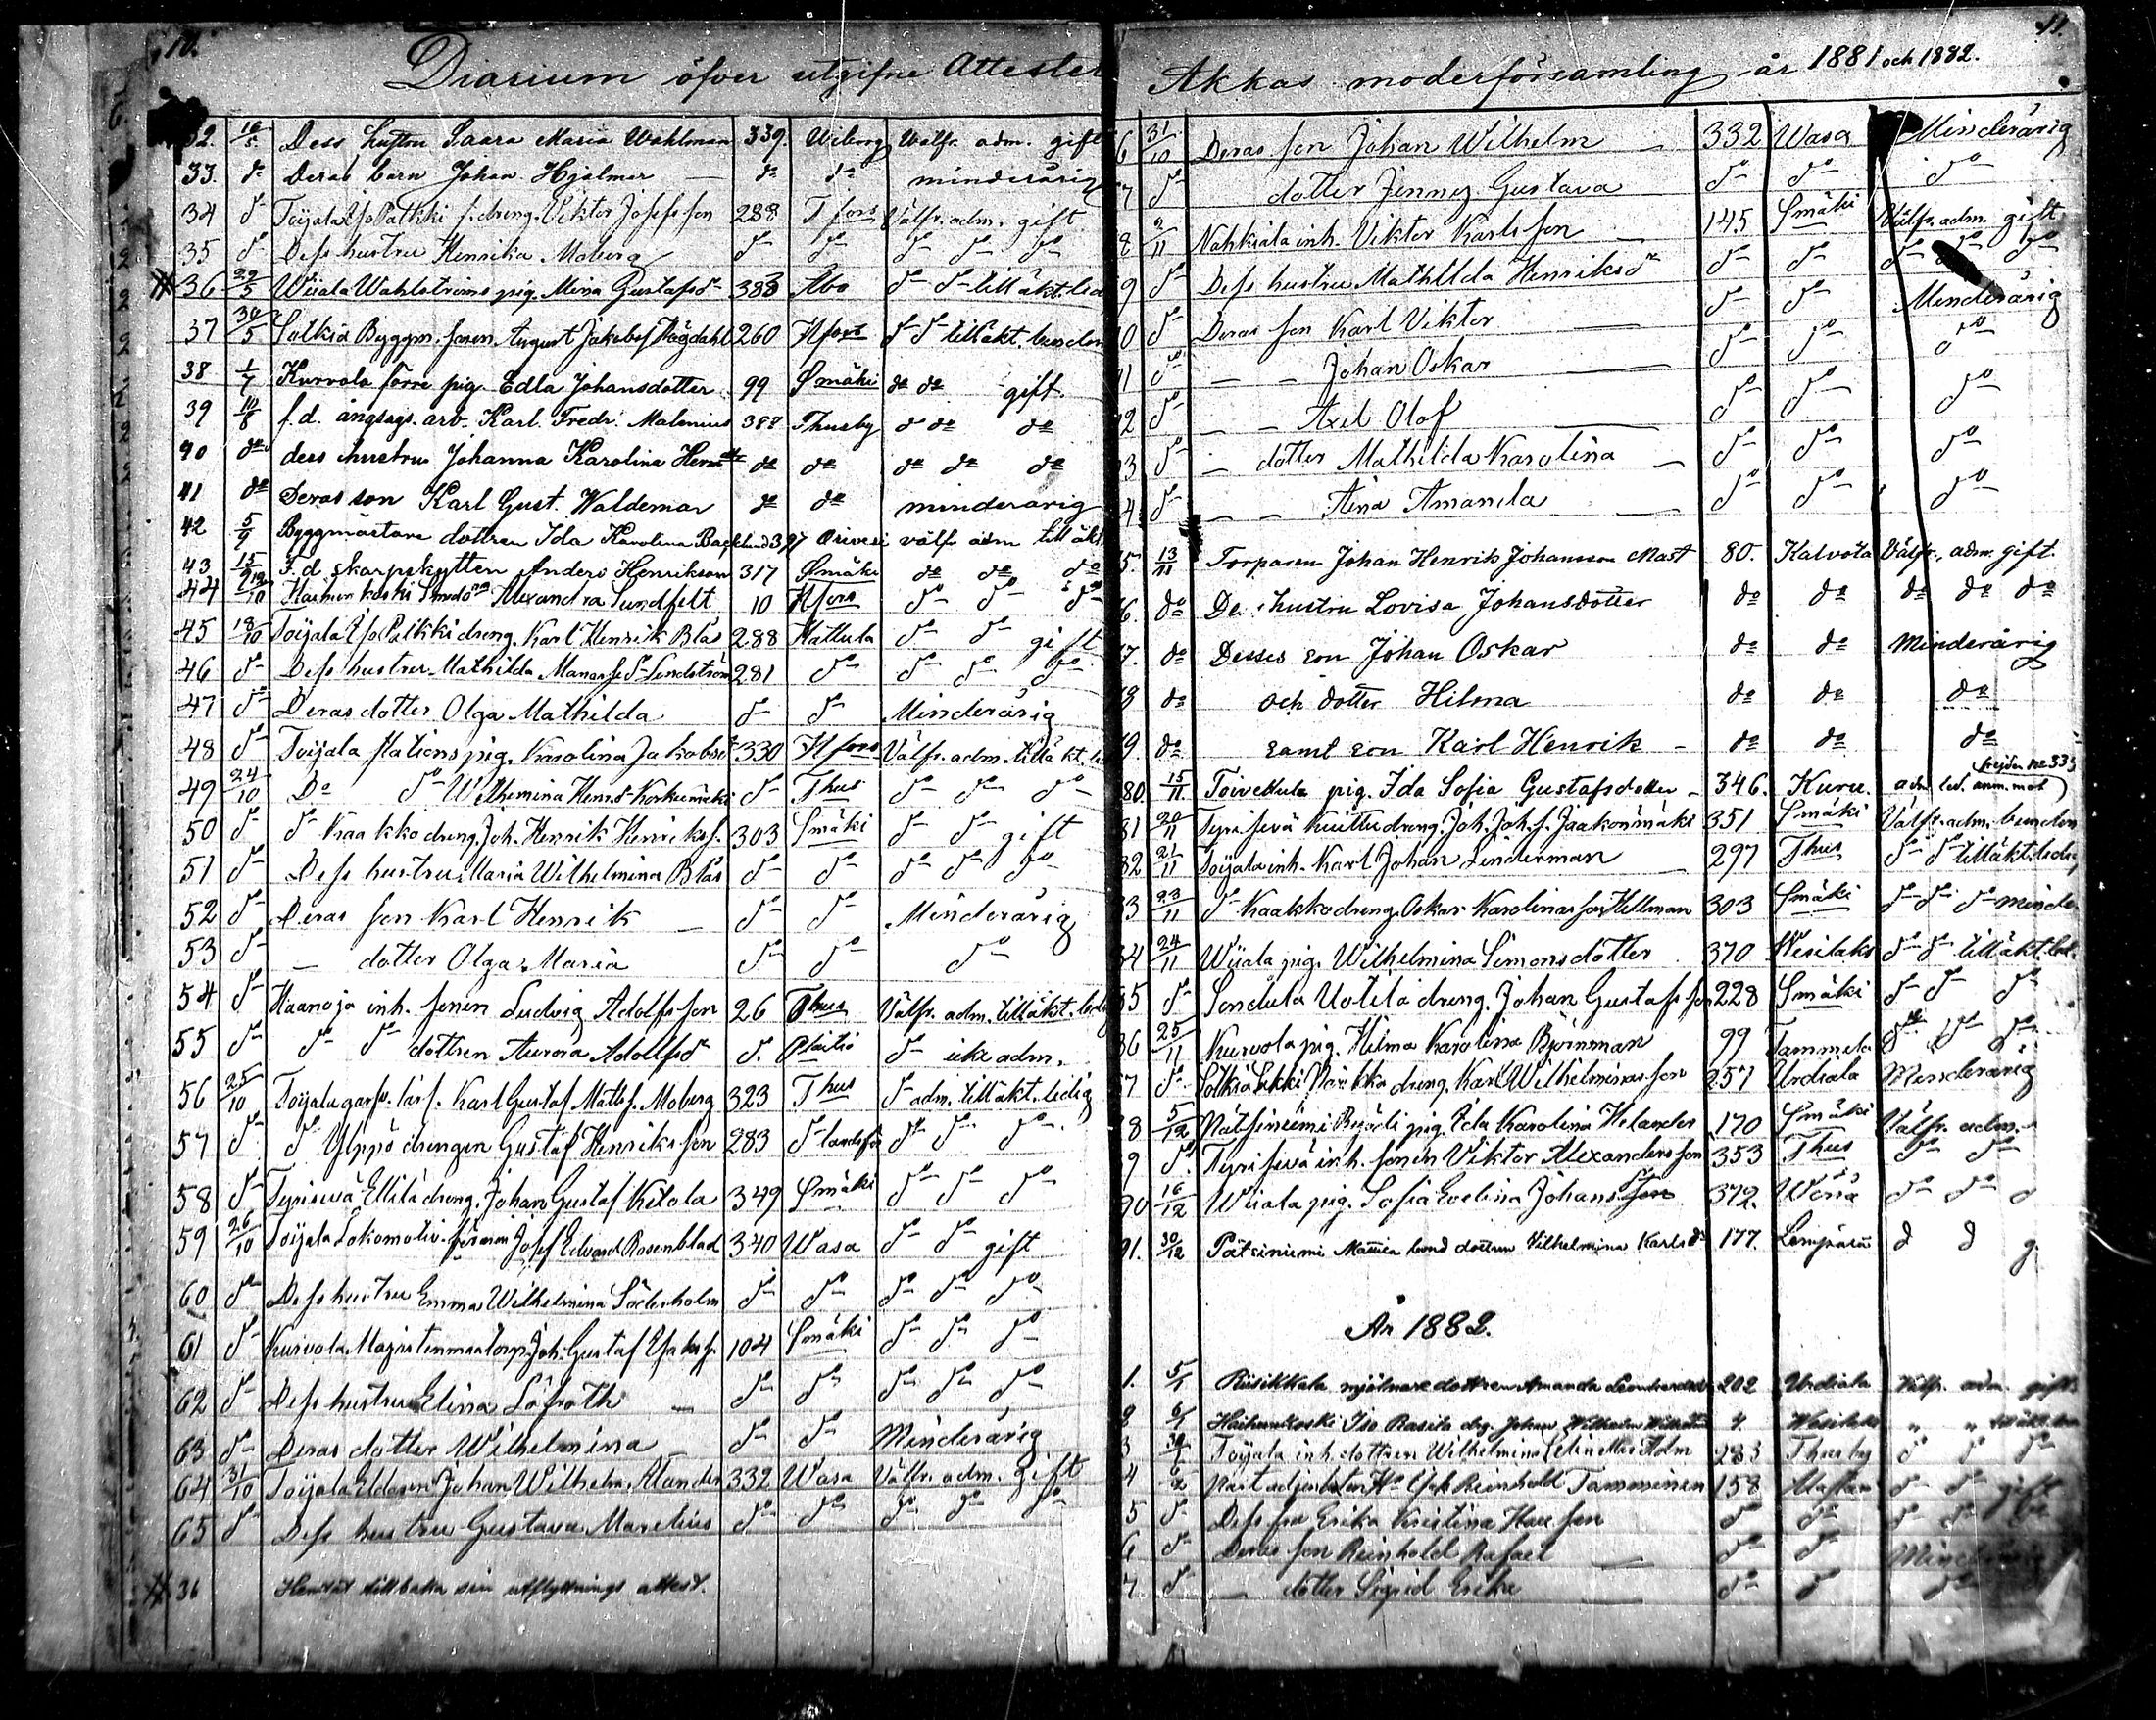 10.
Diarium öfver utgifne Attester
32. 16/5 Dess hustru Saara Maria Wahlman 339. Wiborg Välfr. adm. gift
33. do Deras barn Johan Hjalmar — do do minderårig
34 do Toijala Yso Pätkki s. dreng. Viktor Josefsson 288 Tfors Välfr. adm. gift
35 do Dess hustru Henrika Moberg do do do do do
# 36 22/5 Wiiala Wahlströms pig. Mina Gustafsdr 383 Åbo do do till äkt. led
37 30/5 Sotkia Byggm. sonen August Jakobss Högdahl 260 Hfors do do till äkt. bunden
38 1/7 Kurvola förre pig. Edla Johansdotter 99 Smäki do do gift.
39 10/8 f.d. ångsågs. arb. Karl Fredr. Malenius 388 Thusby do do do
40 do dess hustru Johanna Karolina do do do do do
41 do Deras son Karl Gust. Waldemar do do minderårig
42 5/9 Byggmästare dottren Ida Karolina Backlund 397 Orivesi välfr adm till äkt.
43 15/9 F.d skarpskytten Anders Henrikson 317 Smäki do do do
44 12/10 Haihunkoski Alexandra Sundfelt 10 Hfors do do do
45 18/10 Toijala Yso Pätkki dreng. Karl Henrik Blås 288 Hattula do do gift
46 do Dess hustru Mathilda Manasse dr Lindström 281 do do do do
47 do Deras dotter Olga Mathilda do do Minderårig
48 do Toijala stations pig. Karolina Jakobsdr 330 Hfors Välfr. adm. till äkt. led
49 24/10 Do do Wilhemina Henrdr Korkeemäki do Thus do do do
50 do do Kaakko dreng. Joh. Henrik Henrikss. 303 Smäki do do gift
51 do Dess hustru Maria Wilhelmina Blås do do do do do
52 do Deras son Karl Henrik — do do Minderårig
53 do — dotter Olga Maria do do do
54 do Haanoja inh. sonen Ludvig Adolfsson 26 Thus Välfr. adm. till äkt. ledig
55 do do do dottren Aurora Adolfsdr do. do icke adm.
56 25/10 Toijala garfv. lärl. Karl Gustaf Matts s. Moberg 323 Thus do adm. till äkt. ledig
57 do do Ylppö drengen Gustaf Henriksson 283 do landsförs do do do
58 do Tyrisevä Ellilä dreng. Johan Gustaf Ketola 349 Smäki do do do
59 26/10 Toijala Lokomotiv. Josef Edvard Rosenblad 340 Wasa do do gift
60 do Dess hustru Emma Wilhelmina Söderholm do do do do do
61 do Kurvola torp. Joh. Gustaf 104 Smäki do do do
62 do Dess hustru Elina Löfroth — do do do do do
63 do Deras dotter Wilhelmina — do do Minderårig
64 31/10 Toijala Eldaren Johan Wilhelm Alander 332 Wasa Välfr. adm. gift
65 do Dess hustru Gustava Marelius do do do do do
# 36 Hemtat tillbaka sin utflyttnings attest.
11.
Akkas moderförsamling år 1881 och 1882.
6 31/10 Deras son Johan Wilhelm — 332 Wasa Minderårig
7 do dotter Jenney Gustava do do do
8 2/11 Nahkiala inh. Viktor Karlsson — 145 Smäki Välfr. adm. gift
9 do Dess hustru Mathilda Henriksdr do do do do do
0 do Deras son Karl Viktor — do do Minderårig
1 do — — Johan Oskar — do do do
2 do — — Axel Olof — do do do
3 do — dotter Mathilda Karolina — do do do
4 do — — Aina Amanda — do do do
5. 13/11 Torparen Johan Henrik Johansson Mast 80. Kalvola Välfr. adm. gift.
6. do De. hustru Lovisa Johansdotter do do do do do
7. do Desses son Johan Oskar do do Minderårig
8 do och dotter Hilma do do do
9. do samt son Karl Henrik — do do do
80. 15/11 Toivettula pig. Ida Sofia Gustafsdotter — 346. Kuru. adm led. anm. mot frejden no 335
81 20/11 Tyrisevä Kuittu dreng. Joh. Joh. s. Jaakonmäki 351 Smäki Välfr. adm. bunden
82 21/11 Toijala inh. Karl Johan Linderman — 297 Thus do do till äkt. ledig
3 23/11 do Kaakko dreng. Oskar Karolinasson Hellman 303 Smäki do do do minder
84 24/11 Wiiala pig. Wilhelmina Simonsdotter 370 Wesilaks do do till äkt. led.
85 do Sondula Uotila dreng. Johan Gustafsson 228 Smäki do do do
86 25/11 Kurvola pig. Hilma Karolina Björnman 99 Tammela do do do
7 do Sotkia Karl Wilhelminasson 257 Urdiala Minderårig
8 5/12 Pätsiniemi pig. Eda Karolina Helander 170 Smäki Välfr. adm.
9 do. Tyrisevä inh. sonen Viktor Alexandersson 353 Thus do do
90 16/12 Wiiala pig. Sofia Evelina Johans dr 372. do do d
91. 30/12 Pätsiniemi Mattila bond dottren Vilhelmina Karlsdr 177. Lempäälä d d g.
År 1882.
1. 5/1 Riisikkala mjölnare dottren Amanda 202 Urdiala Välfr. adm. gift.
2 6/1 Haihunkoski Iso Rasila drg. Johan Wilhelm 4. Wesilaks " "
3 Toijala inh. dottren Wilhelmina Holm 283 Thusby d d do
4 Reinhold Tamminen 158 do do gift
5 do Dess fru Erika Kristina Hansson do do do do do
6 do Deras son Reinhold Rafael — do do
7. do — dotter Sigrid Erika do do do